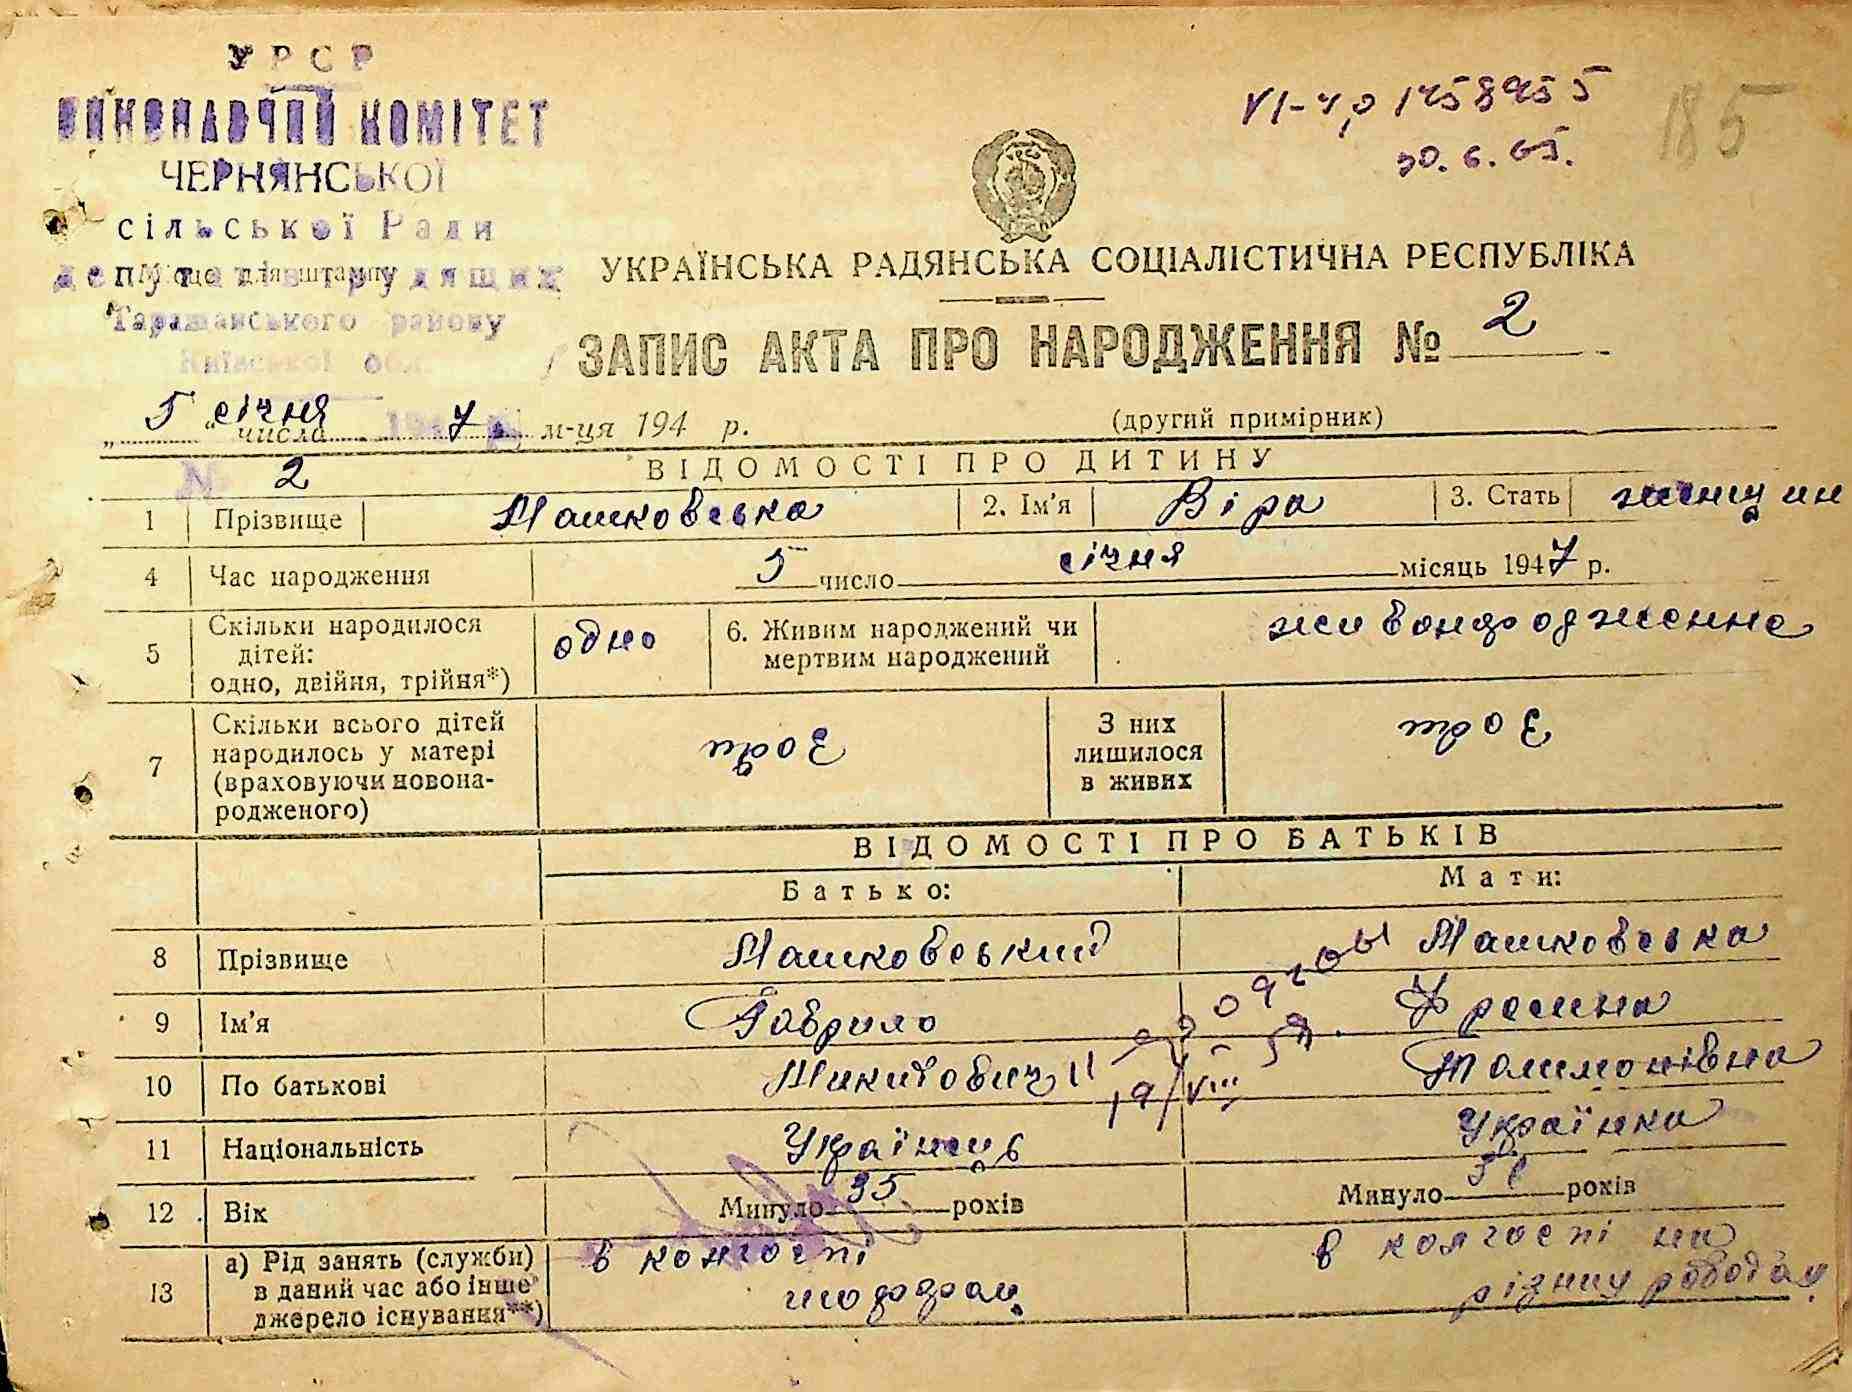 УРСР
ВИКОНАВЧИЙ КОМІТЕТ
ЧЕРНЯНСЬКОЇ
сільської Ради
депутатів трудящих
Місце для штампу
Таращанського району
Київської обл.
VI-
30.6.65.
185
УРСР
УКРАЇНСЬКА РАДЯНСЬКА СОЦІАЛІСТИЧНА РЕСПУБЛІКА
ЗАПИС АКТА ПРО НАРОДЖЕННЯ № 2
„ 5 “ січня числа 1947 р. м-ця 194 р.
(другий примірник)
№ 2
ВІДОМОСТІ ПРО ДИТИНУ
1 Прізвище Машковська 2. Ім'я Віра 3. Стать
4 Час народження 5 число січня місяць 1947 р.
5 Скільки народилося дітей: одно, двійня, трійня*) одно 6. Живим народжений чи мертвим народжений
7 Скільки всього дітей народилось у матері (враховуючи новонародженого) З них лишилося в живих
ВІДОМОСТІ ПРО БАТЬКІВ
Батько: Мати:
8 Прізвище Машковський Машковська
9 Ім'я Гаврило Фросина
10 По батькові Микитович
11 Національність Українець Українка
12 Вік Минуло 35 років Минуло років
13 а) Рід занять (служби) в даний час або інше джерело існування**) в колгоспі в колгоспі на
різних роботах